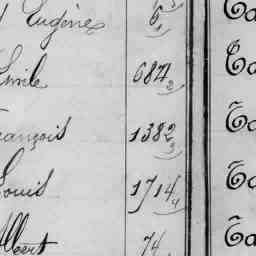 Eugène 6 1 Ta
Emile 684 2 Ta
François 1382 3 Ta
Louis 1714 4 Ta
Albert 74 Ta